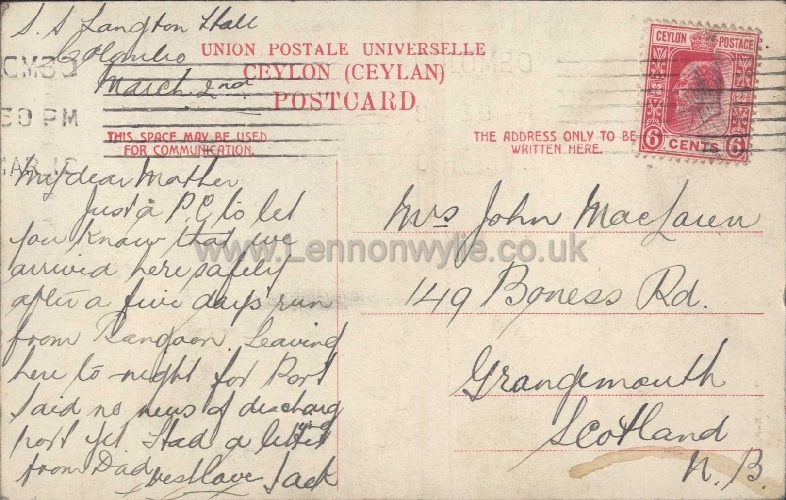 S. S. Langton Hall
Colombo
March 2nd
UNION POSTALE UNIVERSELLE
CEYLON (CEYLAN)
POSTCARD
CEYLON POSTAGE
6 CENTS 6
30 PM
MAR
THIS SPACE MAY BE USED
FOR COMMUNICATION.
THE ADDRESS ONLY TO BE
WRITTEN HERE.
My dear Mother
Just a P.C. to let
you know that we
arrived here safely
after a five days run
from Rangoon. Leaving
here to-night for Port
Said no news of discharging
port yet. Had a letter
from Dad. Best love Jack
Mrs John MacLaren
149 Boness Rd.
Grangemouth
Scotland
N.B.
www.Lennonwylie.co.uk